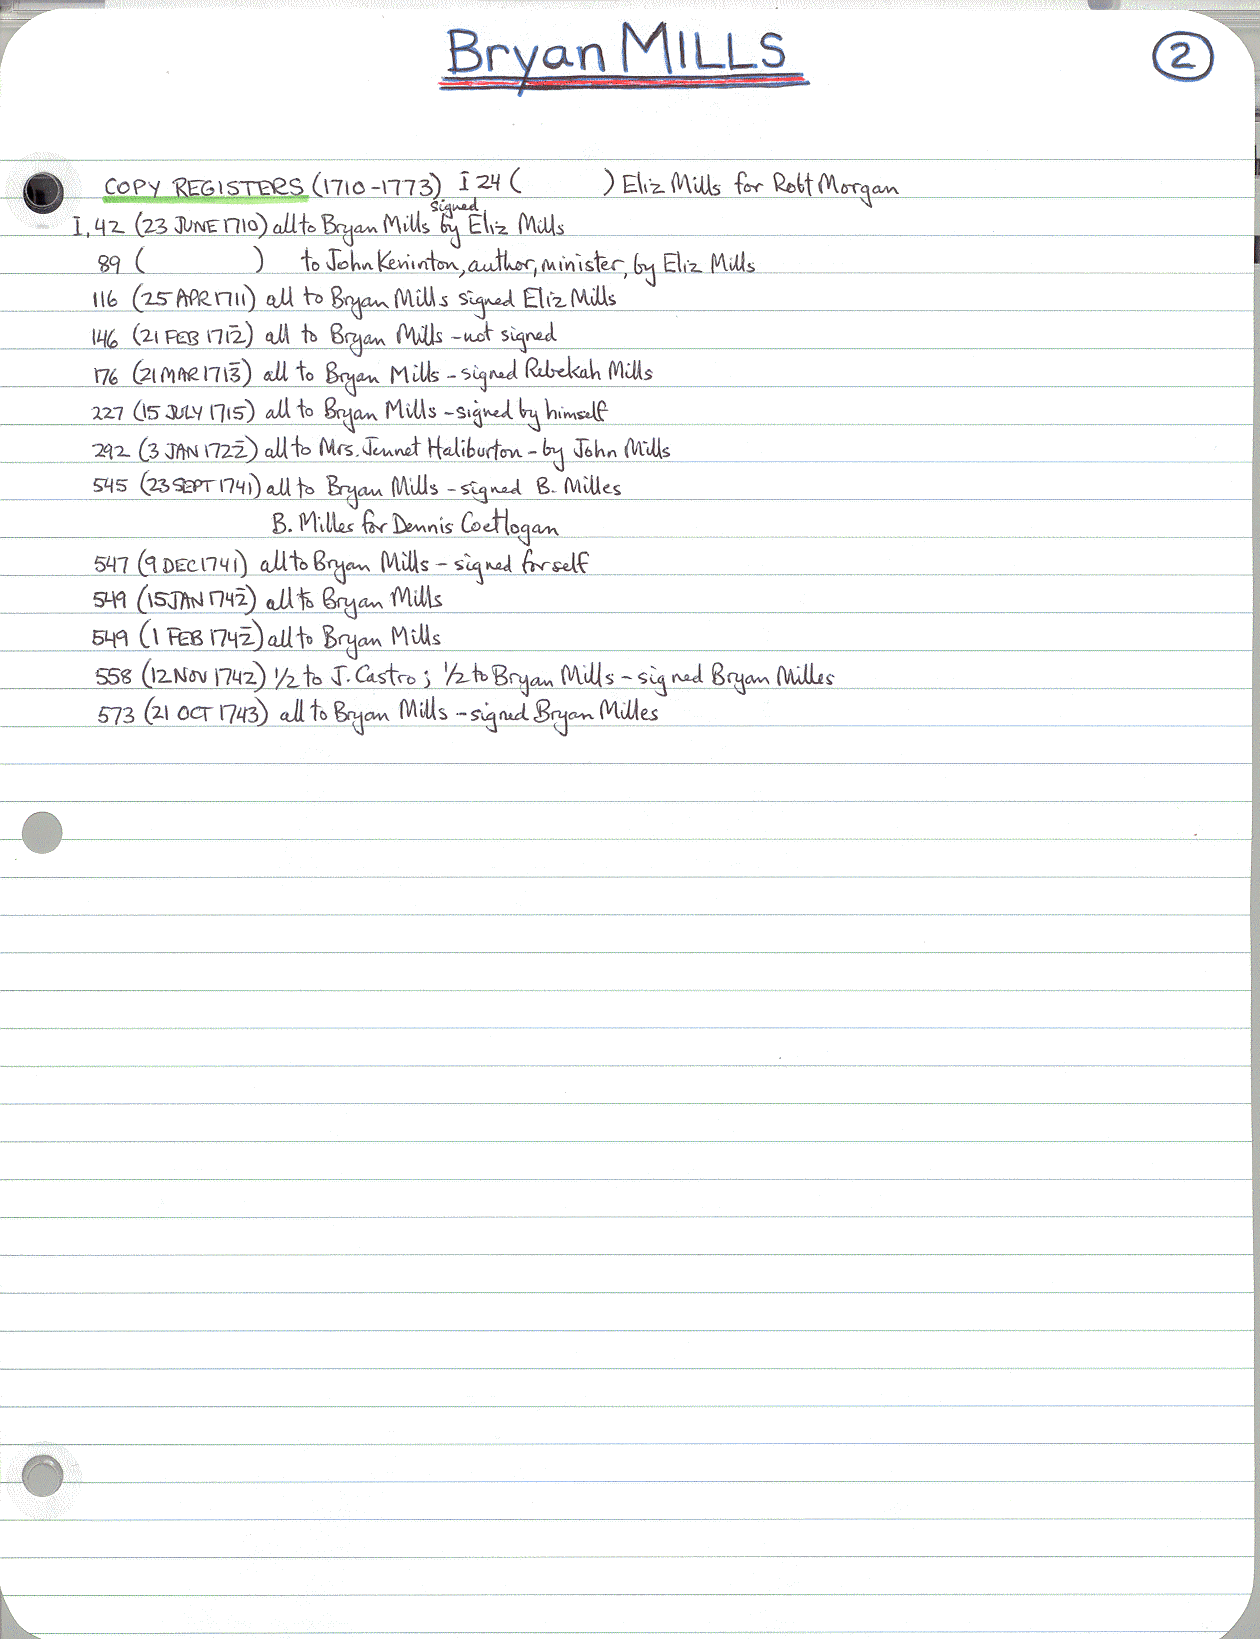 Bryan MILLS
2
COPY REGISTERS (1710-1773) I 24 ( ) Eliz Mills for Robt Morgan
I, 42 (23 JUNE 1710) all to Bryan Mills signed by Eliz Mills
89 ( ) to John Keninton, author, minister, by Eliz Mills
116 (25 APR 1711) all to Bryan Mills signed Eliz Mills
146 (21 FEB 1712) all to Bryan Mills - not signed
176 (21 MAR 1713) all to Bryan Mills - signed Rebekah Mills
227 (15 JULY 1715) all to Bryan Mills - signed by himself
292 (3 JAN 1722) all to Mrs. Jennet Haliburton - by John Mills
545 (23 SEPT 1741) all to Bryan Mills - signed B. Milles
B. Milles for Dennis Coetlogan
547 (9 DEC 1741) all to Bryan Mills - signed for self
549 (15 JAN 1742) all to Bryan Mills
549 (1 FEB 1742) all to Bryan Mills
558 (12 NOV 1742) 1/2 to J. Castro; 1/2 to Bryan Mills - signed Bryan Milles
573 (21 OCT 1743) all to Bryan Mills - signed Bryan Milles